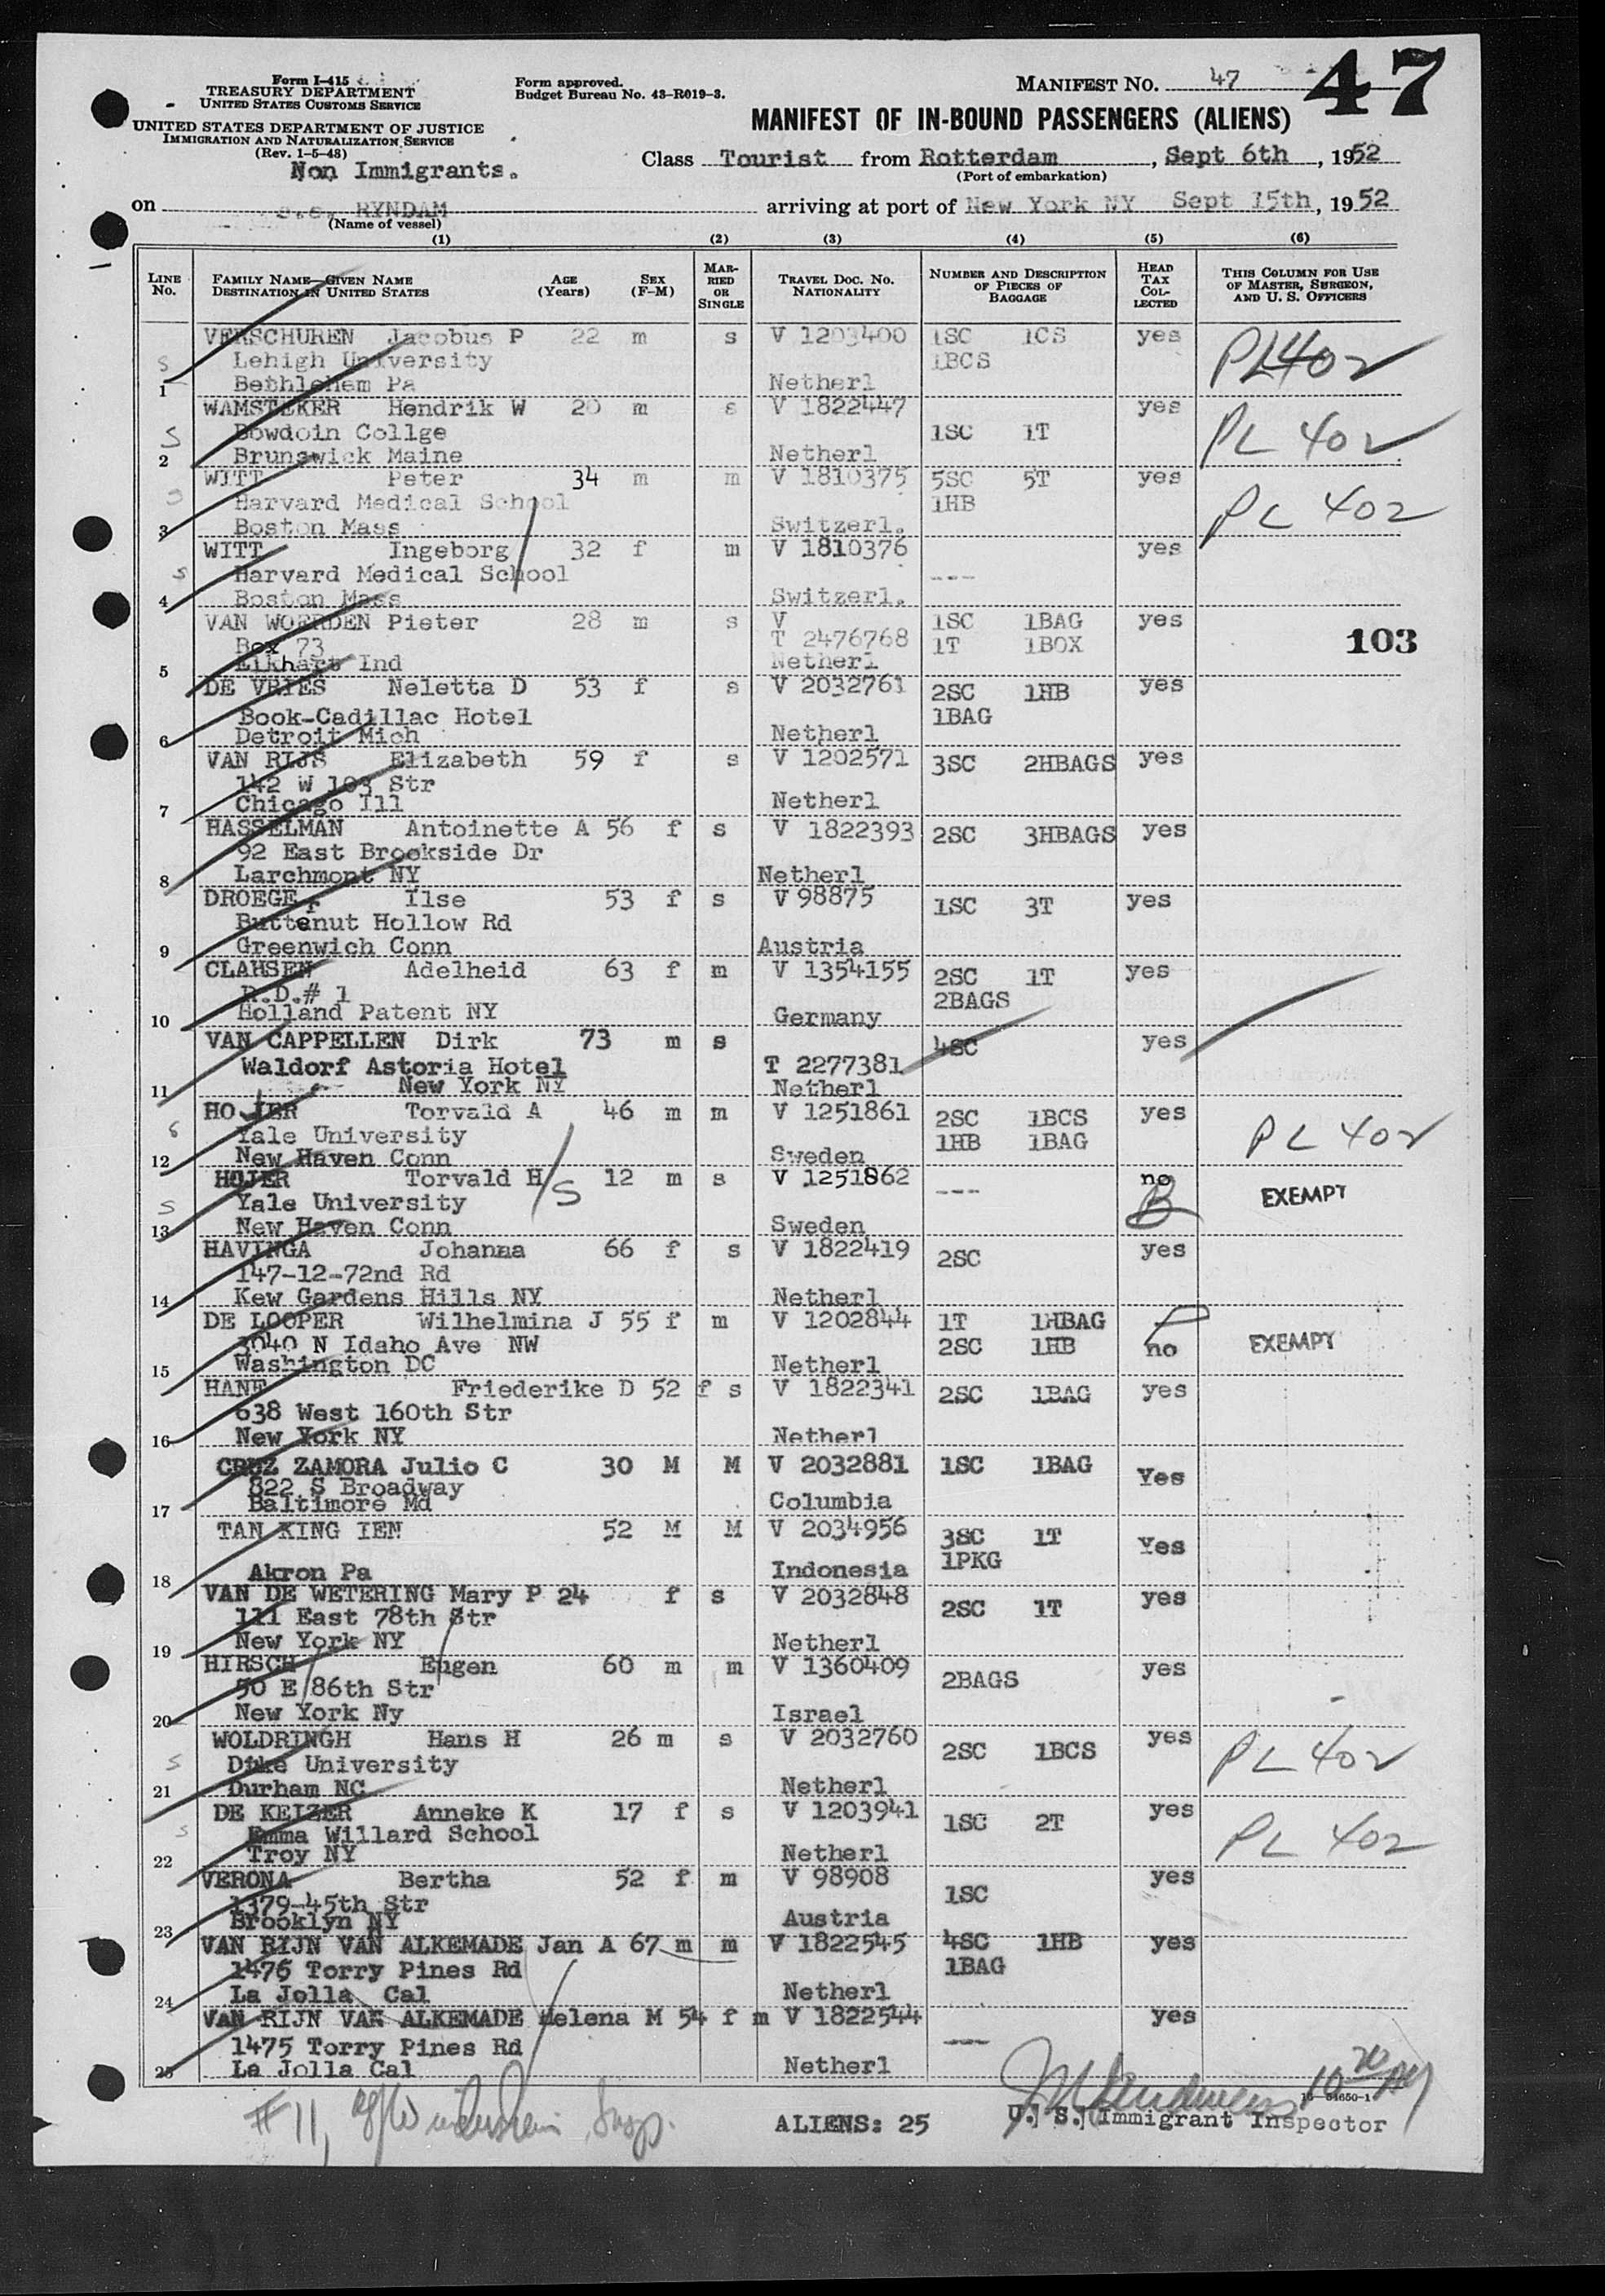 Form I-415
TREASURY DEPARTMENT
UNITED STATES CUSTOMS SERVICE
UNITED STATES DEPARTMENT OF JUSTICE
IMMIGRATION AND NATURALIZATION SERVICE
(Rev. 1-5-48)
Non Immigrants.
Form approved.
Budget Bureau No. 43-R019-3.
MANIFEST No. 47
47
MANIFEST OF IN-BOUND PASSENGERS (ALIENS)
Class Tourist from Rotterdam, Sept 6th, 1952
(Port of embarkation)
on s.s. RYNDAM arriving at port of New York NY Sept 15th, 1952
(Name of vessel)
(1) (2) (3) (4) (5) (6)
LINE No. FAMILY NAME—GIVEN NAME DESTINATION IN UNITED STATES AGE (Years) SEX (F-M) MARRIED OR SINGLE TRAVEL DOC. NO. NATIONALITY NUMBER AND DESCRIPTION OF PIECES OF BAGGAGE HEAD TAX COLLECTED THIS COLUMN FOR USE OF MASTER, SURGEON, AND U. S. OFFICERS
VERSCHUREN Jacobus P 22 m s V 1203400 1SC 1CS yes
S Lehigh University 1BCS PL 402
1 Bethlehem Pa Netherl
WAMSTEKER Hendrik W 20 m s V 1822447 yes
S Bowdoin Collge 1SC 1T PL 402
2 Brunswick Maine Netherl
WITT Peter 34 m m V 1810375 5SC 5T yes
S Harvard Medical School 1HB PL 402
3 Boston Mass Switzerl.
WITT Ingeborg 32 f m V 1810376 yes
S Harvard Medical School ---
4 Boston Mass Switzerl.
VAN WOERDEN Pieter 28 m s V 1SC 1BAG yes
Box 73 T 2476768 1T 1BOX 103
5 Elkhart Ind Netherl
DE VRIES Neletta D 53 f s V 2032761 2SC 1HB yes
Book-Cadillac Hotel 1BAG
6 Detroit Mich Netherl
VAN RIJS Elizabeth 59 f s V 1202571 3SC 2HBAGS yes
142 W 103 Str
7 Chicago Ill Netherl
HASSELMAN Antoinette A 56 f s V 1822393 2SC 3HBAGS yes
92 East Brookside Dr
8 Larchmont NY Netherl
DROEGE Ilse 53 f s V 98875 1SC 3T yes
Buttenut Hollow Rd
9 Greenwich Conn Austria
CLAHSEN Adelheid 63 f m V 1354155 2SC 1T yes
R.D.# 1 2BAGS
10 Holland Patent NY Germany
VAN CAPPELLEN Dirk 73 m s 4SC yes
Waldorf Astoria Hotel T 2277381
11 New York NY Netherl
HOJER Torvald A 46 m m V 1251861 2SC 1BCS yes
S Yale University 1HB 1BAG PL 402
12 New Haven Conn Sweden
HOJER Torvald H 12 m s V 1251862 --- no
S Yale University S B EXEMPT
13 New Haven Conn Sweden
HAVINGA Johanna 66 f s V 1822419 2SC yes
147-12-72nd Rd
14 Kew Gardens Hills NY Netherl
DE LOOPER Wilhelmina J 55 f m V 1202844 1T 1HBAG
3040 N Idaho Ave NW 2SC 1HB no EXEMPT
15 Washington DC Netherl
HANE Friederike D 52 f s V 1822341 2SC 1BAG yes
638 West 160th Str
16 New York NY Netherl
CRUZ ZAMORA Julio C 30 M M V 2032881 1SC 1BAG Yes
822 S Broadway
17 Baltimore Md Columbia
TAN KING IEN 52 M M V 2034956 3SC 1T Yes
1PKG
18 Akron Pa Indonesia
VAN DE WETERING Mary P 24 f s V 2032848 2SC 1T yes
111 East 78th Str
19 New York NY Netherl
HIRSCH Eugen 60 m m V 1360409 2BAGS yes
50 E 86th Str
20 New York Ny Israel
WOLDRINGH Hans H 26 m s V 2032760 2SC 1BCS yes
S Duke University PL 402
21 Durham NC Netherl
DE KEIZER Anneke K 17 f s V 1203941 1SC 2T yes
S Emma Willard School PL 402
22 Troy NY Netherl
VERONA Bertha 52 f m V 98908 1SC yes
1379-45th Str
23 Brooklyn NY Austria
VAN RIJN VAN ALKEMADE Jan A 67 m m V 1822545 4SC 1HB yes
1475 Torry Pines Rd 1BAG
24 La Jolla Cal Netherl
VAN RIJN VAN ALKEMADE Helena M 54 f m V 1822544 yes
1475 Torry Pines Rd ---
25 La Jolla Cal Netherl
#11,
ALIENS: 25
16-54650-1
U. S. Immigrant Inspector